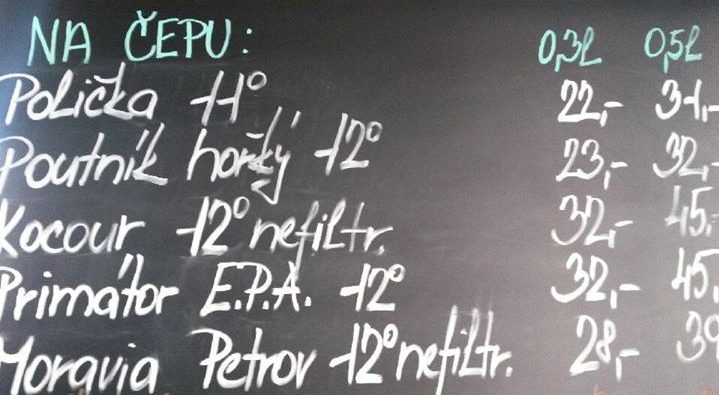 NA ČEPU: 0,3l 0,5l
Polička 11° 22,- 31,-
Poutník hořký 12° 23,- 32,-
Kocour 12° nefiltr. 32,- 45,-
Primátor E.P.A. 12° 32,- 45,
Moravia Petrov 12° nefiltr. 28,- 39